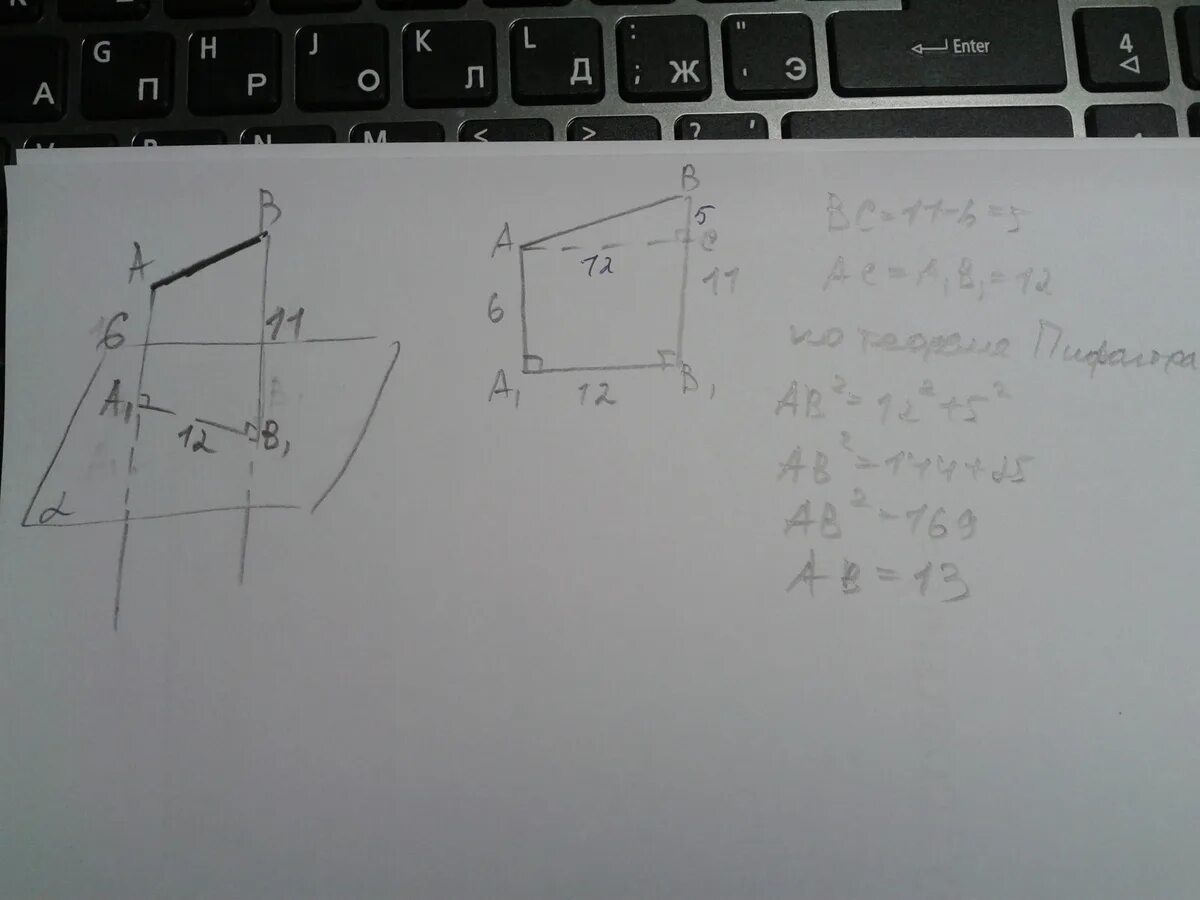 G
H
J
K
L
:
"
Enter
4
А
П
Р
О
Л
Д
; Ж
' Э
M
<
>
? '
B
A
6
11
A₁
12
B₁
α
B
5
A
C
12
6
11
A₁
12
B₁
BC = 11 - 6 = 5
AC = A₁B₁ = 12
по теореме Пифагора
AB² = 12² + 5²
AB² = 144 + 25
AB² = 169
AB = 13